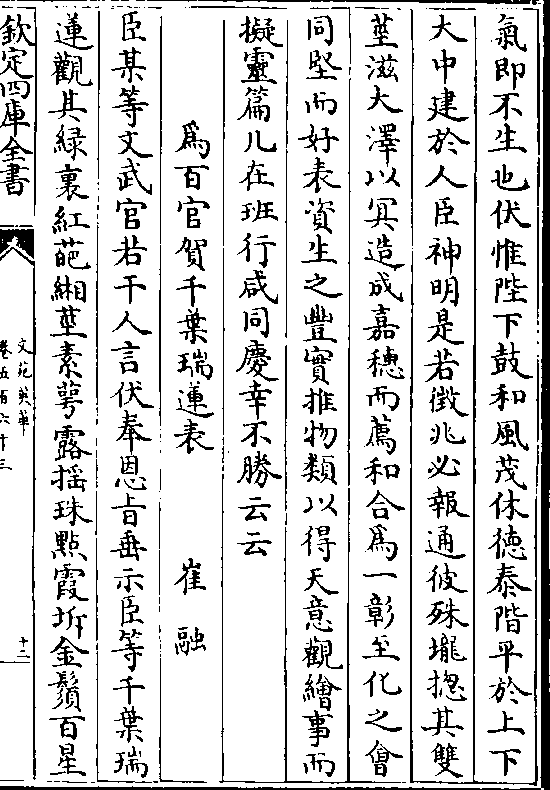 氣即不生也伏惟陛下鼓和風茂休徳泰階平於上下
大中建於人臣神明是若徴兆必報通彼殊壠揔其雙
莖滋大澤以冥造成嘉穗而薦和合爲一彰至化之㑹
同堅而好表資生之豐實推物類以得天意觀繪事而
擬靈篇凡在班行咸同慶幸不勝云云
爲百官賀千葉瑞蓮表 崔融
臣某等文武官若干人言伏奉恩旨垂示臣等千葉瑞
蓮觀其緑裏紅葩緗莖素萼露揺珠點霞坼金鬚百星
欽定四庫全書
文苑英華
卷五百六十三
十二